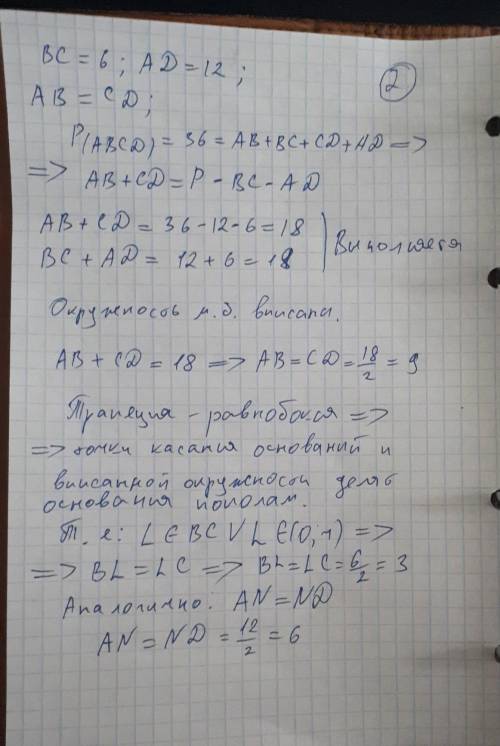 BC = 6 ; AD = 12 ;
2
AB = CD ;
P(ABCD) = 36 = AB + BC + CD + AD =>
=> AB + CD = P - BC - AD
AB + CD = 36 - 12 - 6 = 18
BC + AD = 12 + 6 = 18
Выполяется
Окружность м.б. вписана.
AB + CD = 18 => AB = CD = 18/2 = 9
Трапеция - равнобокая =>
=> точки касания оснований и
вписанной окружности делят
основания пополам.
Т. е: L ∈ BC ∨ L ∈ (0; r) =>
=> BL = LC => BL = LC = 6/2 = 3
Аналогично: AN = ND
AN = ND = 12/2 = 6